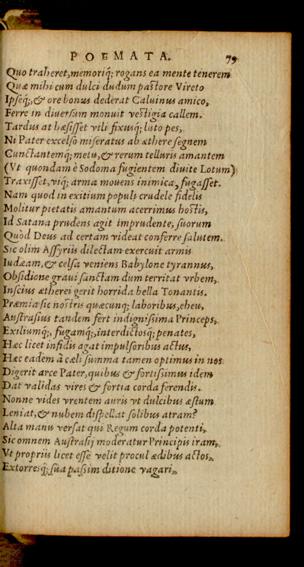 POEMATA. 79
Quo traheret, memoriq́; rogans ea mente tenerem
Quæ mihi cum dulci dudum pastore Vireto
Ipseq́;, & ore bonus dederat Caluinus amico,
Ferre in diuersum monuit vestigia callem.
Tardus at hæsisset vili fixusq́; luto pes,
Ni Pater excelso miseratus ab æthere segnem
Cunctantemq́; metu, & rerum telluris amantem
(Vt quondam è Sodoma fugientem diuite Lotum)
Traxisset, viq́; arma mouens inimica, fugasset.
Nam quod in exitium populi crudele fidelis
Molitur pietatis amantum acerrimus hostis,
Id Satana prudens agit imprudente, suorum
Quòd Deus ad certam videat conferre salutem.
Sic olim Assyriis dilectam exercuit armis
Iudæam, & celsa veniens Babylone tyrannus,
Obsidione graui sanctam dum territat vrbem,
Inscius ætherei gerit horrida bella Tonantis.
Præmia sic nostris quæcunq; laboribus, eheu,
Austrasius tandem fert indignissima Princeps,
Exiliumq́;, fugamq́;, interdictosq́; penates,
Hæc licet infidis agat impulsoribus actus,
Hæc eadem à cæli summa tamen optimus in nos
Digerit arce Pater, quibus & fortissimus idem
Dat validas vires & fortia corda ferendis.
Nonne vides vrentem auris vt dulcibus æstum
Leniat, & nubem dispellat solibus atram?
Alta manu versat qui Regum corda potenti,
Sic omnem Austrasij moderatur Principis iram,
Vt propriis licet esse velit procul ædibus actos,
Extorresq́; sua passim ditione vagari,